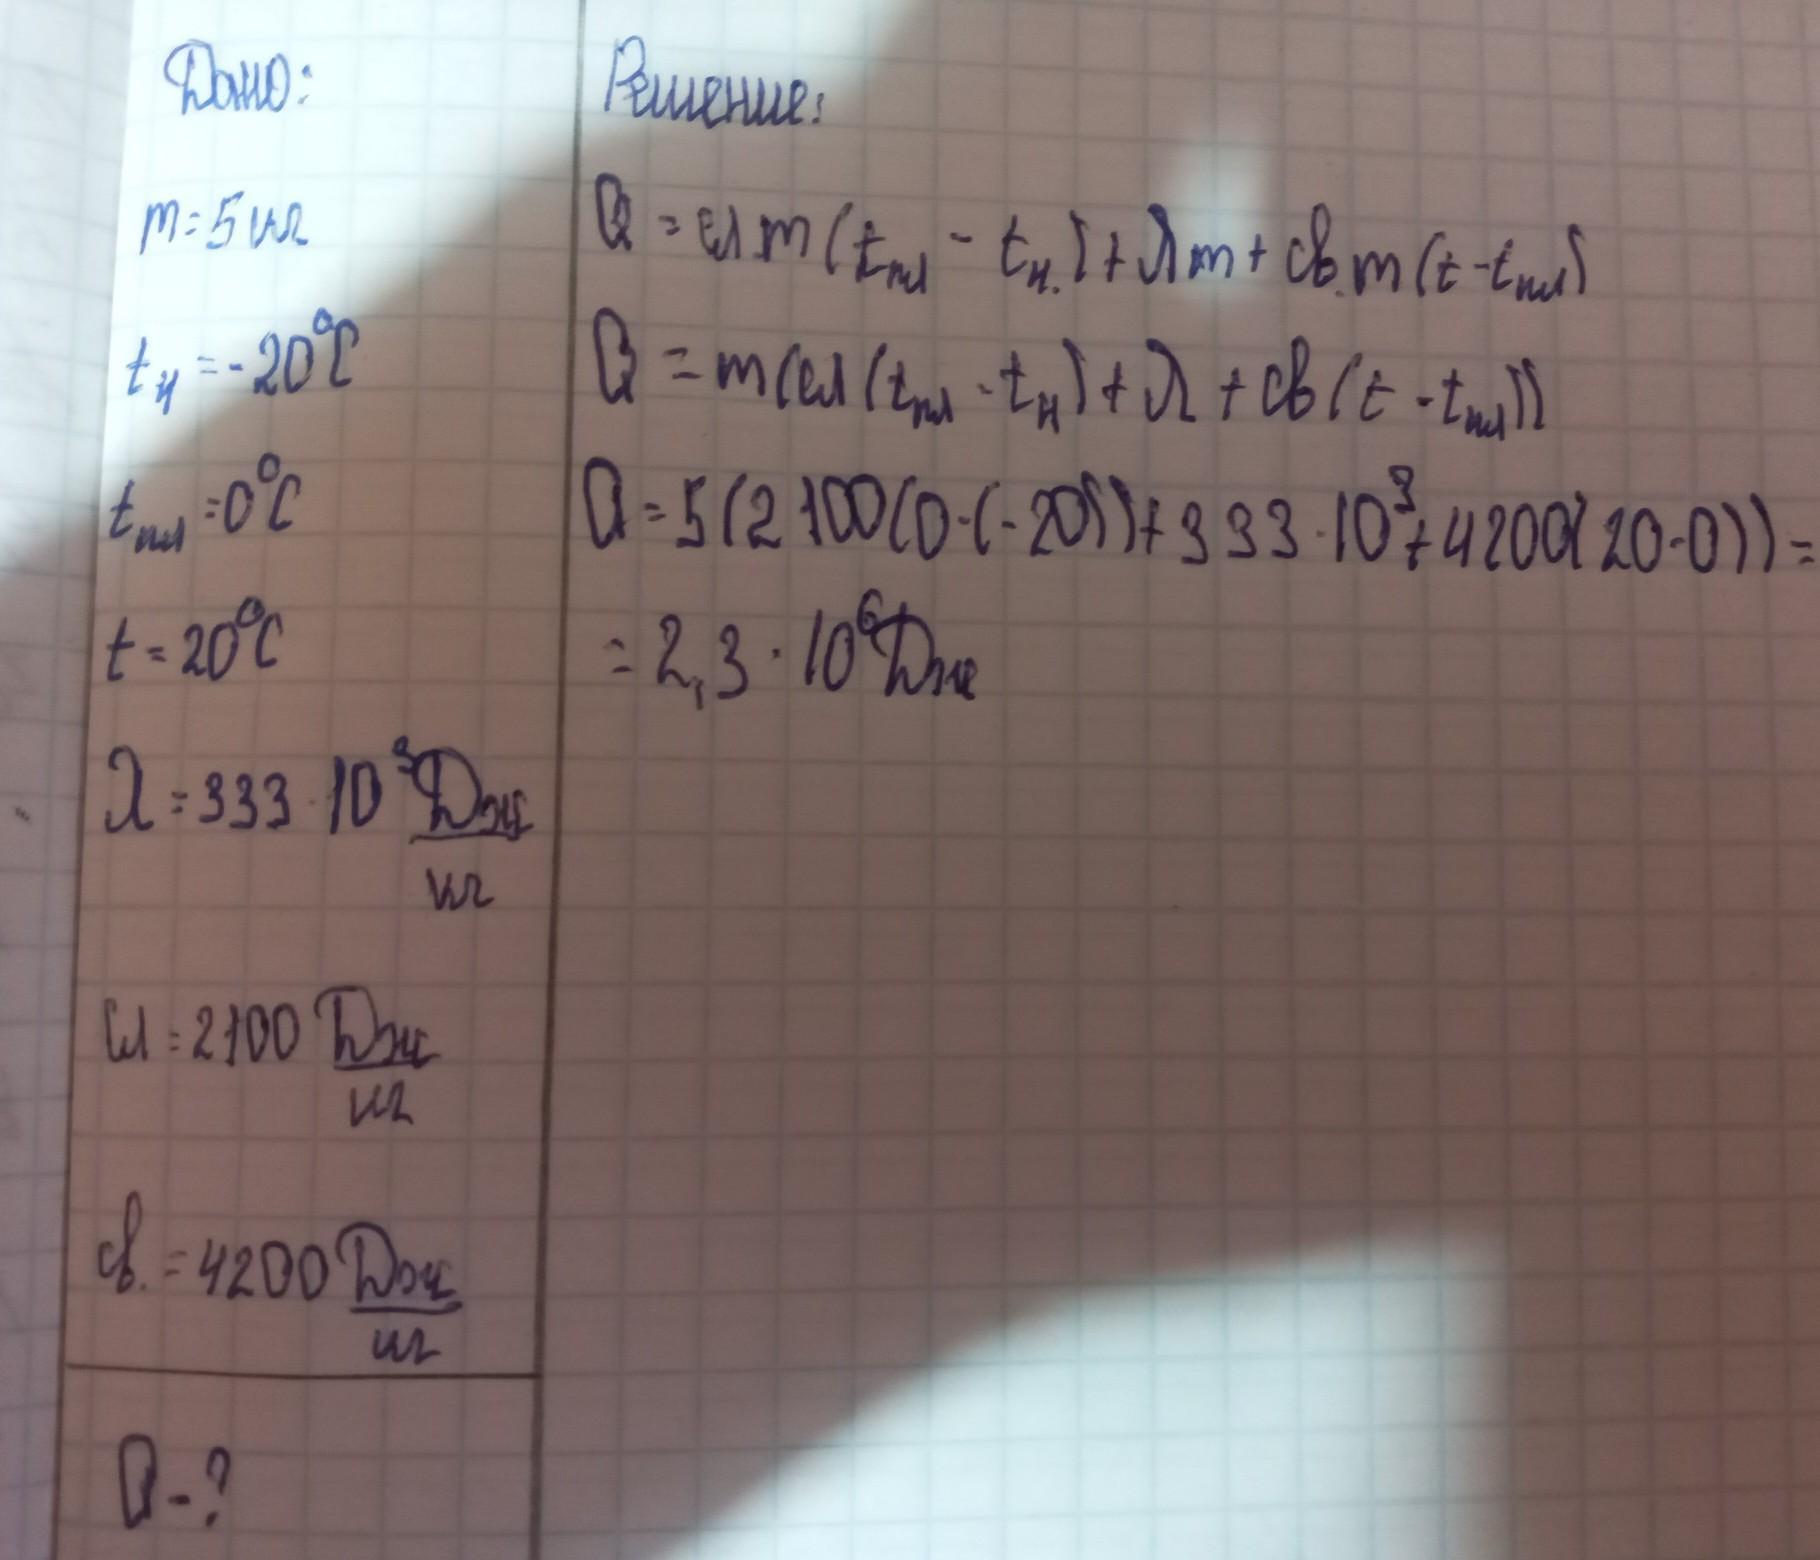 Дано:
m=5кг
tн=-20°C
tпл=0°C
t=20°C
λ=333·10³ Дж/кг
cл=2100 Дж/кг
cв.=4200 Дж/кг
Q-?
Решение:
Q=cлm(tпл-tн.)+λm+cв.m(t-tпл)
Q=m(cл(tпл-tн)+λ+cв(t-tпл))
Q=5(2100(0-(-20))+333·10³+4200(20-0))=
=2,3·10⁶Дж